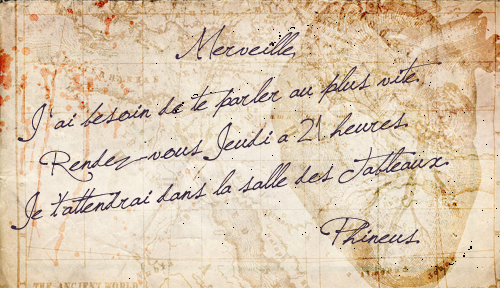 Merveille,
J'ai besoin de te parler au plus vite.
Rendez-vous Jeudi a 21 heures.
Je t'attendrai dans la salle des Tableaux.
Phineus.
THE ANCIENT WORLD